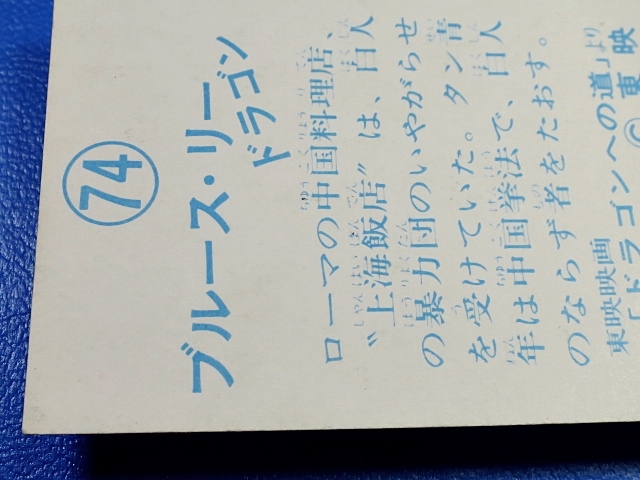 74
ブルース・リー
ドラゴン
ローマの中国料理店、
〝上海飯店〟は、白人
の暴力団のいやがらせ
を受けていた。タン青
年は中国拳法で、白人
のならず者をたおす。
東映映画
「ドラゴンへの道」より
東映